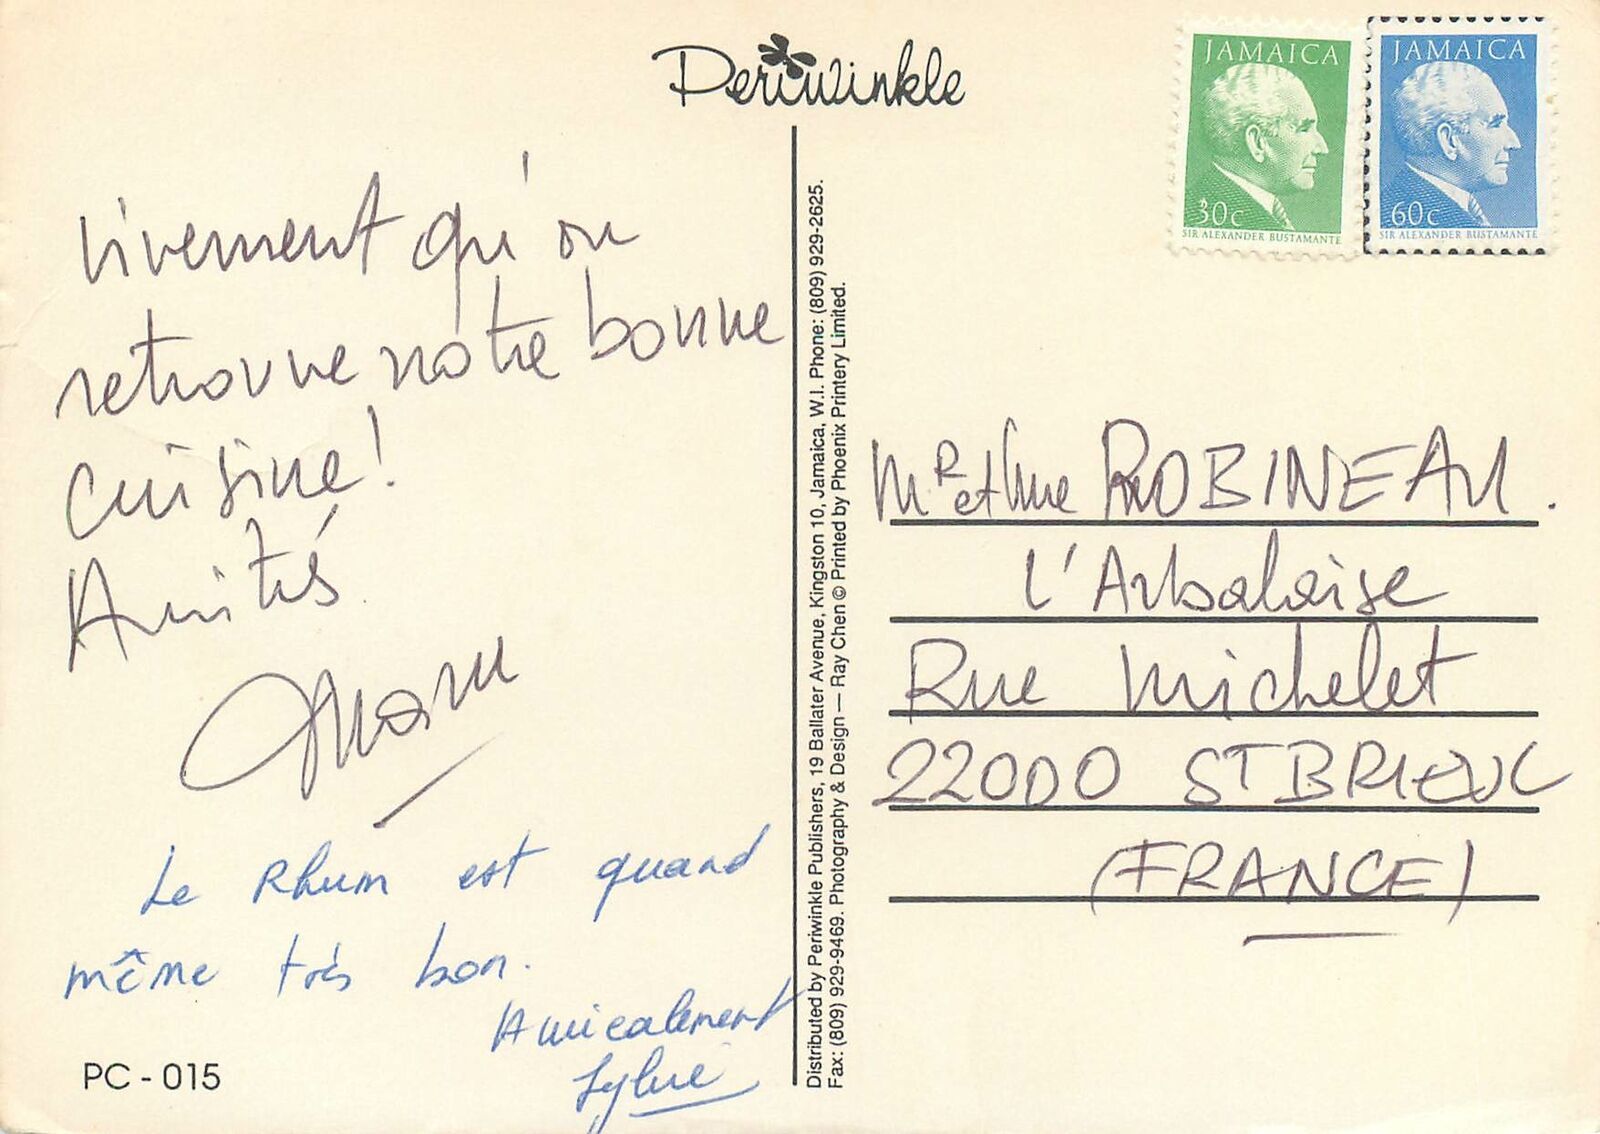 Periwinkle
JAMAICA
30c
SIR ALEXANDER BUSTAMANTE
JAMAICA
60c
SIR ALEXANDER BUSTAMANTE
vivement qu'on
retrouve notre bonne
cuisine!
Amitiés
Le Rhum est quand
même très bon.
Amicalement
Sylvie
PC - 015
Distributed by Periwinkle Publishers, 19 Ballater Avenue, Kingston 10, Jamaica, W.I. Phone: (809) 929-2625.
Fax: (809) 929-9469. Photography & Design — Ray Chen © Printed by Phoenix Printery Limited.
Mr et Mme ROBINEAU.
L'Arbalaise
Rue Michelet
22000 ST BRIEUC
(FRANCE)